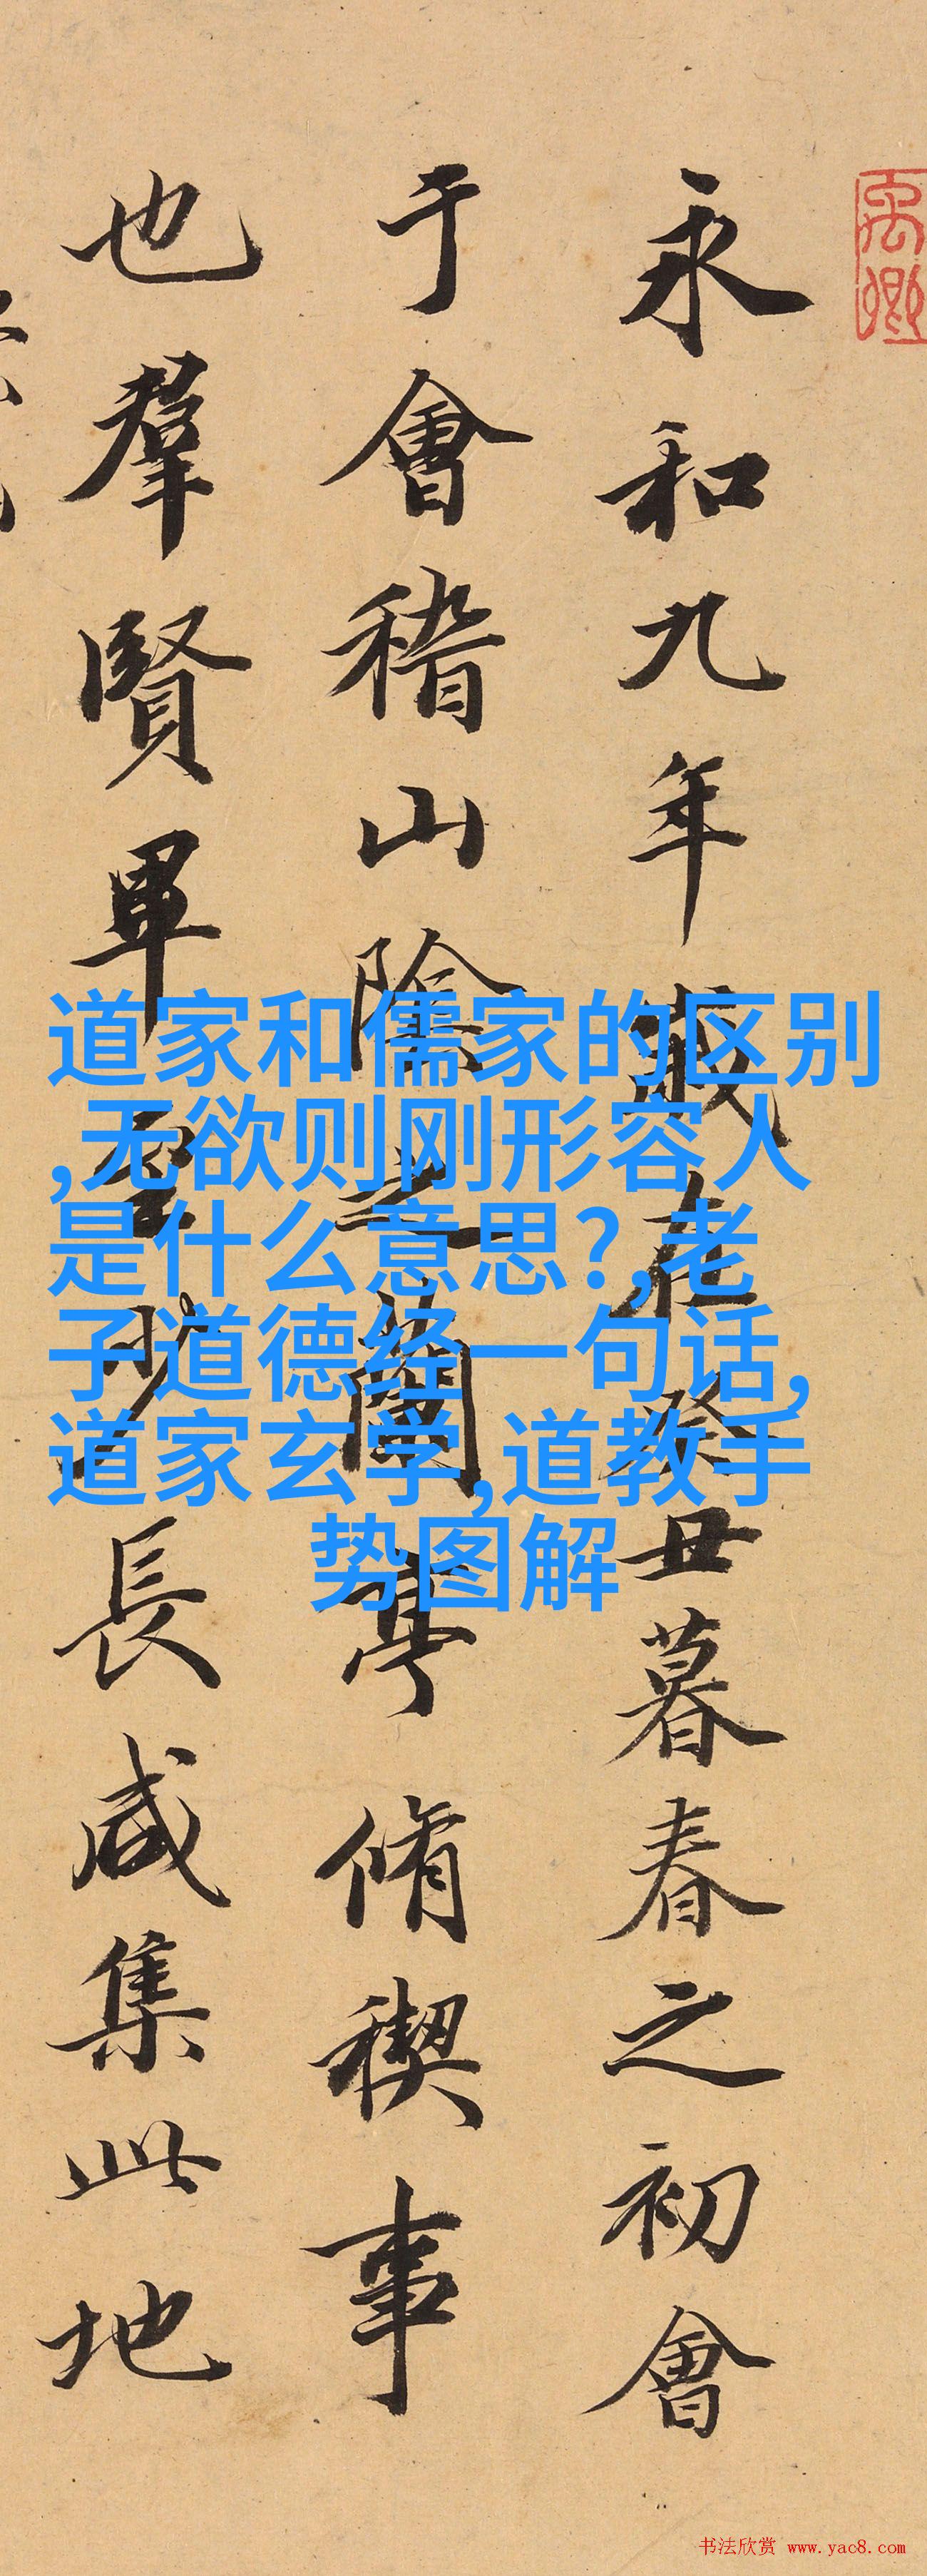 永和九年歲在癸丑暮春之初會
于會稽山陰之蘭亭脩稧事
也羣賢畢至少長咸集此地
道家和儒家的区别
,无欲则刚形容人
是什么意思?,老
子道德经一句话,
道家玄学,道教手
势图解
书法欣赏 www.yac8.com